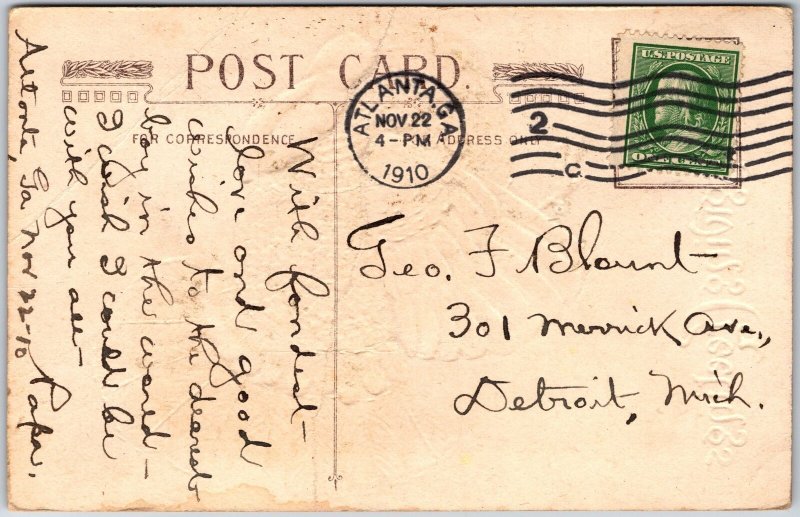 U.S. POSTAGE
POST CARD.
ATLANTA, GA.
NOV 22
4-PM
1910
2
C.
FOR CORRESPONDENCE
ADDRESS ONLY
With fondest
love and good
wishes to the dearest
boy in the world
I wish I could be
with you all
Papa.
Atlanta, Ga Nov 22-10
Geo. F Blount
301 Merrick Ave.,
Detroit, Mich.